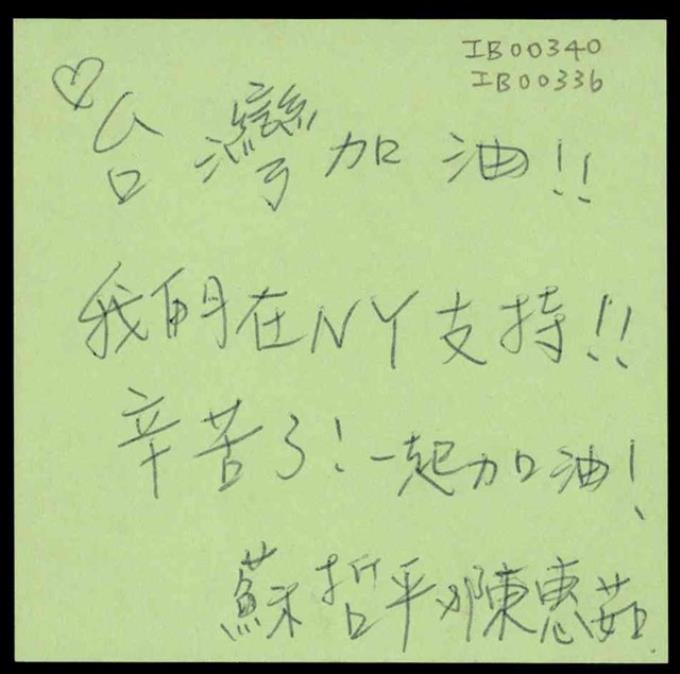 IB00340
IB00336
♡台灣加油!!
我們在NY支持!!
辛苦了!一起加油!
蘇哲平 陳惠茹